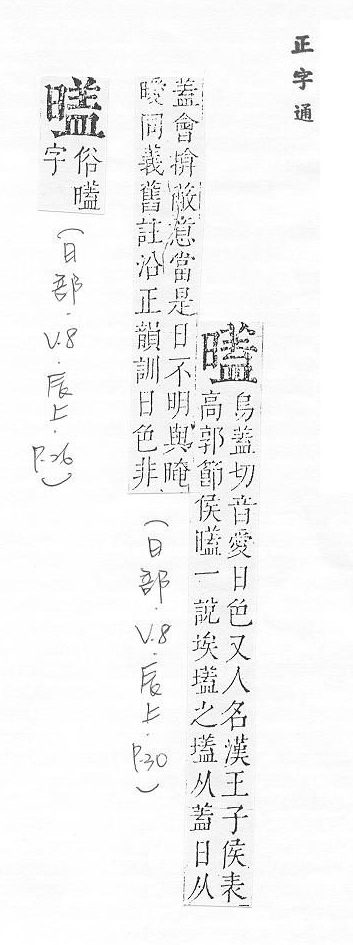 正字通
烏蓋切音愛日色又人名漢王子侯表
高郭節侯一說埃壒之壒从蓋日从
蓋會揜蔽意當是日不明與晻
曖同義舊註沿正韻訓日色非
(日部.V.8.辰上.P.30)
俗
字
(日部.V.8.辰上.P.26)